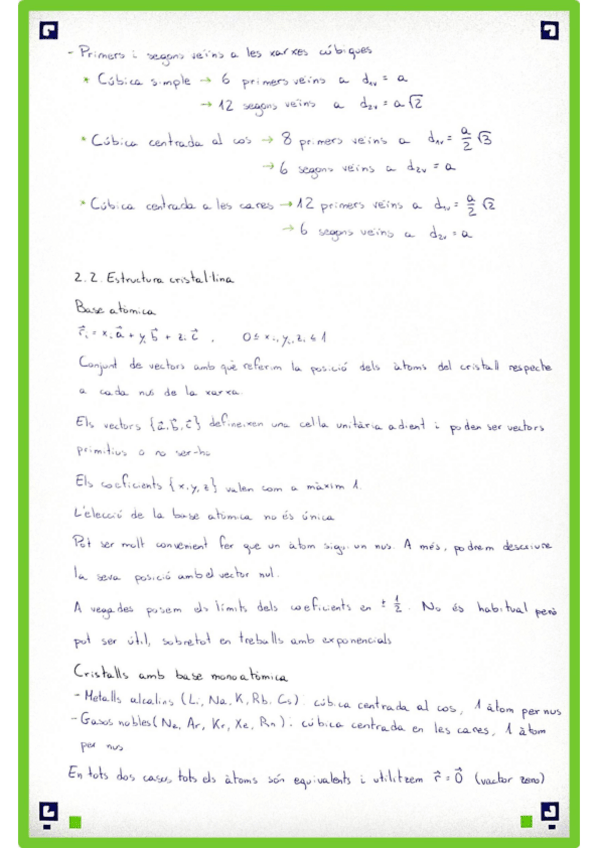 - Primers i segons veïns a les xarxes cúbiques
* Cúbica simple → 6 primers veïns a d₁ᵥ = a
→ 12 segons veïns a d₂ᵥ = a √2
* Cúbica centrada al cos → 8 primers veïns a d₁ᵥ = a/2 √3
→ 6 segons veïns a d₂ᵥ = a
* Cúbica centrada a les cares → 12 primers veïns a d₁ᵥ = a/2 √2
→ 6 segons veïns a d₂ᵥ = a
2.2. Estructura cristal·lina
Base atòmica
r⃗ᵢ = xᵢ a⃗ + yᵢ b⃗ + zᵢ c⃗ , 0 ≤ xᵢ, yᵢ, zᵢ ≤ 1
Conjunt de vectors amb què referim la posició dels àtoms del cristall respecte
a cada nus de la xarxa.
Els vectors {a⃗, b⃗, c⃗} defineixen una cel·la unitària adient i poden ser vectors
primitius o no ser-ho
Els coeficients {x, y, z} valen com a màxim 1.
L'elecció de la base atòmica no és única
Pot ser molt convenient fer que un àtom sigui un nus. A més, podrem descriure
la seva posició amb el vector nul.
A vegades posem els límits dels coeficients en ± 1/2. No és habitual però
pot ser útil, sobretot en treballs amb exponencials
Cristalls amb base monoatòmica
- Metalls alcalins (Li, Na, K, Rb, Cs): cúbica centrada al cos, 1 àtom per nus
- Gasos nobles (Ne, Ar, Kr, Xe, Rn): cúbica centrada en les cares, 1 àtom
per nus
En tots dos casos tots els àtoms són equivalents i utilitzem r⃗ = 0⃗ (vector zero)